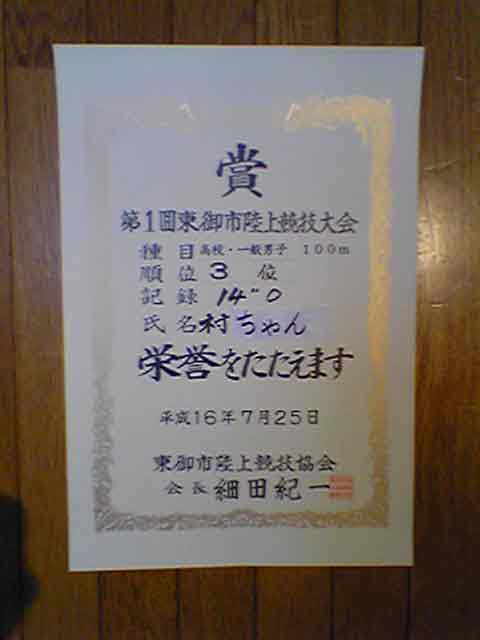 賞
第1回東御市陸上競技大会
種目 高校・一般男子 100m
順位 3 位
記録 14"0
氏名 村ちゃん
栄誉をたたえます
平成16年7月25日
東御市陸上競技協会
会長 細田紀一